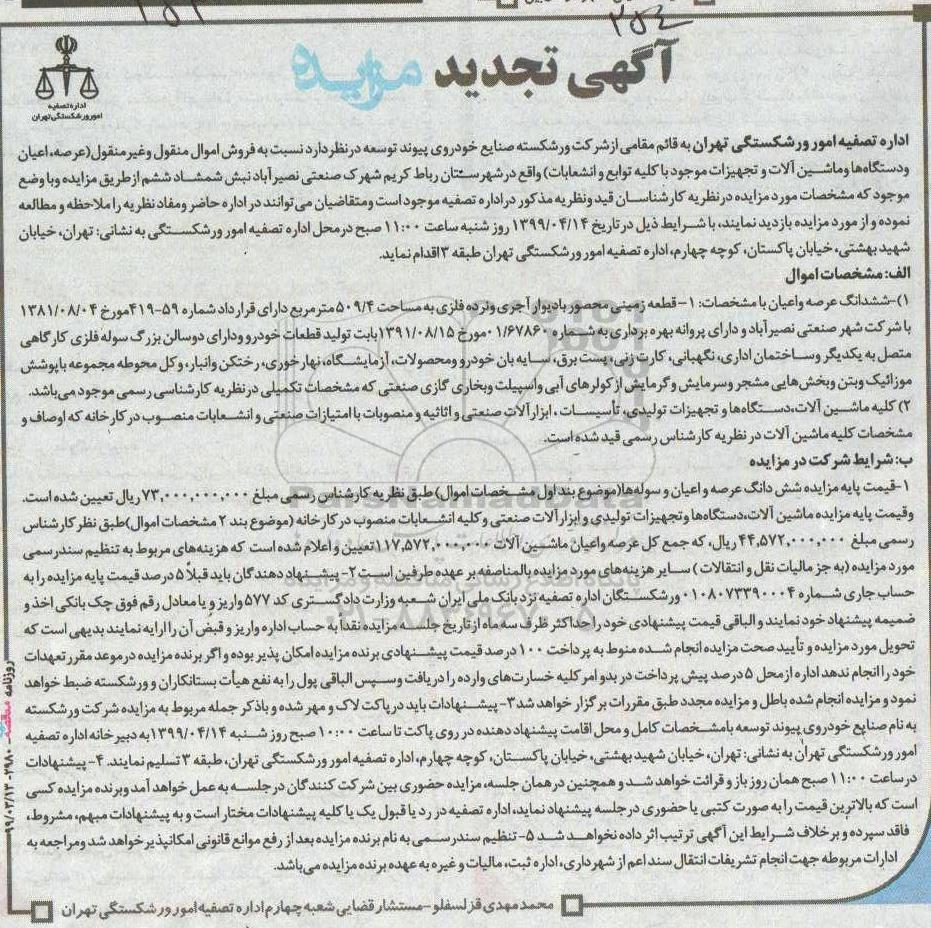 ۲۵۴
آگهی تجدید مزایده
اداره تصفیه
امور ورشکستگی تهران
اداره تصفیه امور ورشکستگی تهران به قائم مقامی از شرکت ورشکسته صنایع خودروی پیوند توسعه در نظر دارد نسبت به فروش اموال منقول و غیر منقول (عرصه، اعیان
ودستگاه‌ها وماشین آلات و تجهیزات موجود با کلیه توابع و انشعابات) واقع در شهرستان رباط کریم شهرک صنعتی نصیر آباد نبش شمشاد ششم از طریق مزایده وبا وضع
موجود که مشخصات مورد مزایده در نظریه کارشناسان قید ونظریه مذکور در اداره تصفیه موجود است ومتقاضیان می توانند در اداره حاضر ومفاد نظریه را ملاحظه و مطالعه
نموده و از مورد مزایده بازدید نمایند، با شرایط ذیل در تاریخ ۱۳۹۹/۰۴/۱۴ روز شنبه ساعت ۱۱:۰۰ صبح در محل اداره تصفیه امور ورشکستگی به نشانی: تهران، خیابان
شهید بهشتی، خیابان پاکستان، کوچه چهارم، اداره تصفیه امور ورشکستگی تهران طبقه ۳ اقدام نماید.
الف: مشخصات اموال
۱)-ششدانگ عرصه واعیان با مشخصات: ۱- قطعه زمینی محصور با دیوار آجری ونرده فلزی به مساحت ۵۰۹/۴ مترمربع دارای قرارداد شماره ۵۹-۴۱۹ مورخ ۱۳۸۱/۰۸/۰۴
با شرکت شهر صنعتی نصیرآباد و دارای پروانه بهره برداری به شماره ۰۱/۶۷۸۶۰ مورخ ۱۳۹۱/۰۸/۱۵ بابت تولید قطعات خودرو ودارای دوسالن بزرگ سوله فلزی کارگاهی
متصل به یکدیگر وساختمان اداری، نگهبانی، کارت زنی، پست برق، سایه بان خودرو ومحصولات، آزمایشگاه، نهارخوری، رختکن وانبار، وکل محوطه مجموعه باپوشش
موزائیک وبتن وبخش‌هایی مشجر وسرمایش وگرمایش از کولرهای آبی واسپیلت وبخاری گازی صنعتی که مشخصات تکمیلی درنظریه کارشناسی رسمی موجود می‌باشد.
۲) کلیه ماشین آلات،دستگاه‌ها و تجهیزات تولیدی، تأسیسات ، ابزارآلات صنعتی و اثاثیه و منصوبات با امتیازات صنعتی و انشعابات منصوب در کارخانه که اوصاف و
مشخصات کلیه ماشین آلات در نظریه کارشناس رسمی قید شده است.
ب: شرایط شرکت در مزایده
۱-قیمت پایه مزایده شش دانگ عرصه و اعیان و سوله‌ها(موضوع بند اول مشخصات اموال) طبق نظریه کارشناس رسمی مبلغ ۷۳,۰۰۰,۰۰۰,۰۰۰ ریال تعیین شده است.
وقیمت پایه مزایده ماشین آلات،دستگاه‌ها وتجهیزات تولیدی و ابزارآلات صنعتی وکلیه انشعابات منصوب در کارخانه (موضوع بند ۲ مشخصات اموال)طبق نظر کارشناس
رسمی مبلغ ۴۴,۵۷۲,۰۰۰,۰۰۰ ریال، که جمع کل عرصه واعیان ماشین آلات ۱۱۷,۵۷۲,۰۰۰,۰۰۰ تعیین و اعلام شده است که هزینه‌های مربوط به تنظیم سندرسمی
مورد مزایده (به جز مالیات نقل و انتقالات ) سایر هزینه‌های مورد مزایده بالمناصفه بر عهده طرفین است ۲- پیشنهاد دهندگان باید قبلاً ۵ درصد قیمت پایه مزایده را به
حساب جاری شماره ۰۱۰۸۰۷۳۳۹۰۰۰۴ ورشکستگان اداره تصفیه نزد بانک ملی ایران شعبه وزارت دادگستری کد ۵۷۷ واریز و یا معادل رقم فوق چک بانکی اخذ و
ضمیمه پیشنهاد خود نمایند و الباقی قیمت پیشنهادی خود را حداکثر ظرف سه ماه از تاریخ جلسه مزایده نقدا به حساب اداره واریز و قبض آن را ارایه نمایند بدیهی است که
تحویل مورد مزایده و تأیید صحت مزایده انجام شده منوط به پرداخت ۱۰۰ درصد قیمت پیشنهادی برنده مزایده امکان پذیر بوده و اگر برنده مزایده درموعد مقرر تعهدات
خود را انجام ندهد اداره از محل ۵ درصد پیش پرداخت در بدو امر کلیه خسارت‌های وارده را دریافت وسپس الباقی پول را به نفع هیأت بستانکاران و ورشکسته ضبط خواهد
نمود و مزایده انجام شده باطل و مزایده مجدد طبق مقررات برگزار خواهد شد ۳- پیشنهادات باید درپاکت لاک و مهر شده و باذکر جمله مربوط به مزایده شرکت ورشکسته
به نام صنایع خودروی پیوند توسعه بامشخصات کامل و محل اقامت پیشنهاد دهنده در روی پاکت تا ساعت ۱۰:۰۰ صبح روز شنبه ۱۳۹۹/۰۴/۱۴ به دبیرخانه اداره تصفیه
امور ورشکستگی تهران به نشانی: تهران، خیابان شهید بهشتی، خیابان پاکستان، کوچه چهارم، اداره تصفیه امور ورشکستگی تهران، طبقه ۳ تسلیم نمایند. ۴- پیشنهادات
در ساعت ۱۱:۰۰ صبح همان روز باز و قرائت خواهد شد و همچنین درهمان جلسه، مزایده حضوری بین شرکت کنندگان در جلسه به عمل خواهد آمد وبرنده مزایده کسی
است که بالاترین قیمت را به صورت کتبی یا حضوری در جلسه پیشنهاد نماید، اداره تصفیه در رد یا قبول یک یا کلیه پیشنهادات مختار است و به پیشنهادات مبهم، مشروط،
فاقد سپرده و بر خلاف شرایط این آگهی ترتیب اثر داده نخواهد شد ۵- تنظیم سند رسمی به نام برنده مزایده بعد از رفع موانع قانونی امکانپذیر خواهد شد ومراجعه به
ادارات مربوطه جهت انجام تشریفات انتقال سند اعم از شهرداری، اداره ثبت، مالیات و غیره به عهده برنده مزایده می‌باشد.
محمد مهدی قزلسفلو-مستشار قضایی شعبه چهارم اداره تصفیه امور ورشکستگی تهران
روزنامه مناقصه - ۲۹۸۰ - ۹۹/۰۳/۱۳